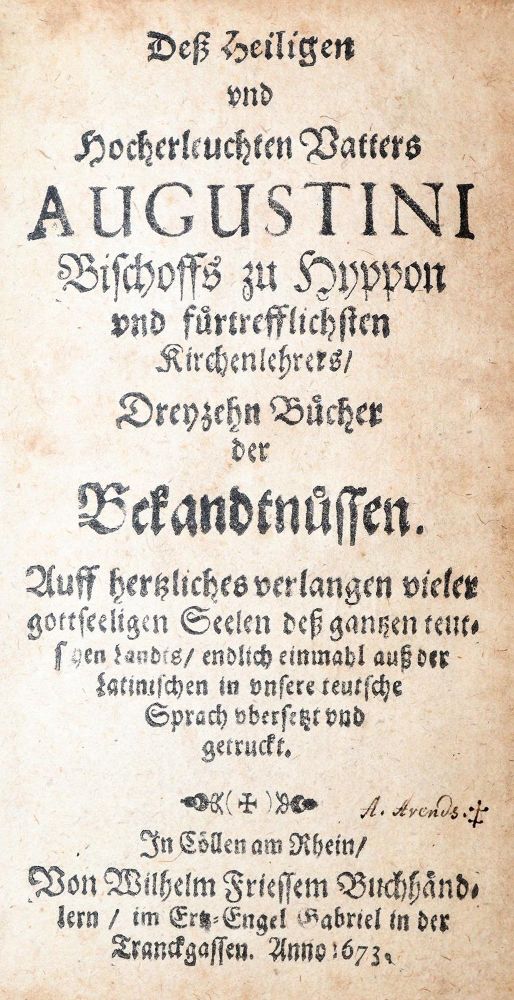 Deß Heiligen
vnd
Hocherleuchten Vatters
AUGUSTINI
Bischoffs zu Hyppon
vnd fůrtrefflichsten
Kirchenlehrers/
Dreyzehn Bůcher
der
Bekandtnůssen.
Auff hertzliches verlangen vieler
gottseeligen Seelen deß gantzen teut-
schen Landts/ endlich einmahl auß der
Latinischen in vnsere teutsche
Sprach vbersetzt vnd
getruckt.
A. Arends.
In Cöllen am Rhein/
Von Wilhelm Friessem Buchhänd-
lern / im Ertz-Engel Gabriel in der
Tranckgassen. Anno 1673.